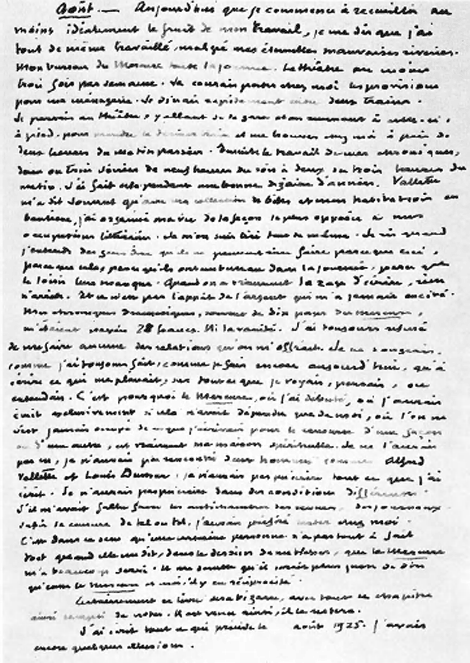 Août. — Aujourd'hui que je commence à recueillir au
moins idéalement le fruit de mon travail, je me dis que j'ai
tout de même travaillé, malgré mes éternelles mauvaises
Mon bureau du Mercure toute la journée. Le théâtre au moins
trois fois par semaine. Je courais porter chez moi les provisions
pour ma ménagerie. Je dînais rapidement entre deux trains.
Je revenais au théâtre, y allant de la gare et en revenant à celle-ci,
à pied, pour prendre le dernier train et me trouver chez moi à près de
deux heures du matin passées. Ensuite le travail de mes chroniques,
deux ou trois soirées de neuf heures du soir à deux ou trois heures du
matin. J'ai fait cela pendant une bonne dizaine d'années. Vallette
m'a dit souvent qu'avec ma collection de bêtes et mon habitation en
banlieue, j'ai organisé ma vie de la façon la plus opposée à mes
occupations littéraires. Je m'en suis tiré tout de même. Je ris quand
j'entends des gens dire qu'ils ne peuvent rien faire parce que ceci,
parce que cela, parce qu'ils ont un bureau dans la journée, parce que
le loisir leur manque. Quand on a vraiment la rage d'écrire, rien
n'arrête. Et ce n'est pas l'appât de l'argent qui m'a jamais excité.
Mes chroniques dramatiques, de dix pages du Mercure,
m'étaient payées 28 francs. Ni la vanité. J'ai toujours refusé
de me faire aucune des relations qu'on m'offrait. Je ne songeais,
comme j'ai toujours fait, comme je fais encore aujourd'hui, qu'à
écrire ce qui me plaisait, sur tout ce que je voyais, pensais, ou
entendais. C'est pourquoi le Mercure, où j'ai débuté, où j'aurais
écrit exclusivement si cela n'avait dépendu que de moi, où l'on ne
s'est jamais occupé de ce que j'écrivais pour le censurer d'une façon
ou d'une autre, est vraiment ma maison spirituelle. Je ne l'aurais
pas eu, je n'aurais pas rencontré deux hommes comme Alfred
Vallette et Louis Dumur, je n'aurais pas écrit tout ce que j'ai
écrit. Je n'aurais pas pu écrire dans des conditions différentes.
S'il m'avait fallu faire les antichambres des revues, des journaux,
subir la censure de tel ou tel, j'aurais préféré rester chez moi.
C'est dans ce sens qu'une certaine personne n'a pas tout à fait
tort quand elle me dit, dans le dessein de me blesser, que le Mercure
m'a beaucoup servi. Je me doute qu'il serait plus juste de dire
qu'entre le Mercure et moi, il y a réciprocité.
Certainement ce livre sera bizarre, avec tout ce chapitre
ainsi de notes. Il est venu ainsi, il le restera.
J'ai écrit tout ce qui précède le août 1925. J'avais
encore quelques illusions.